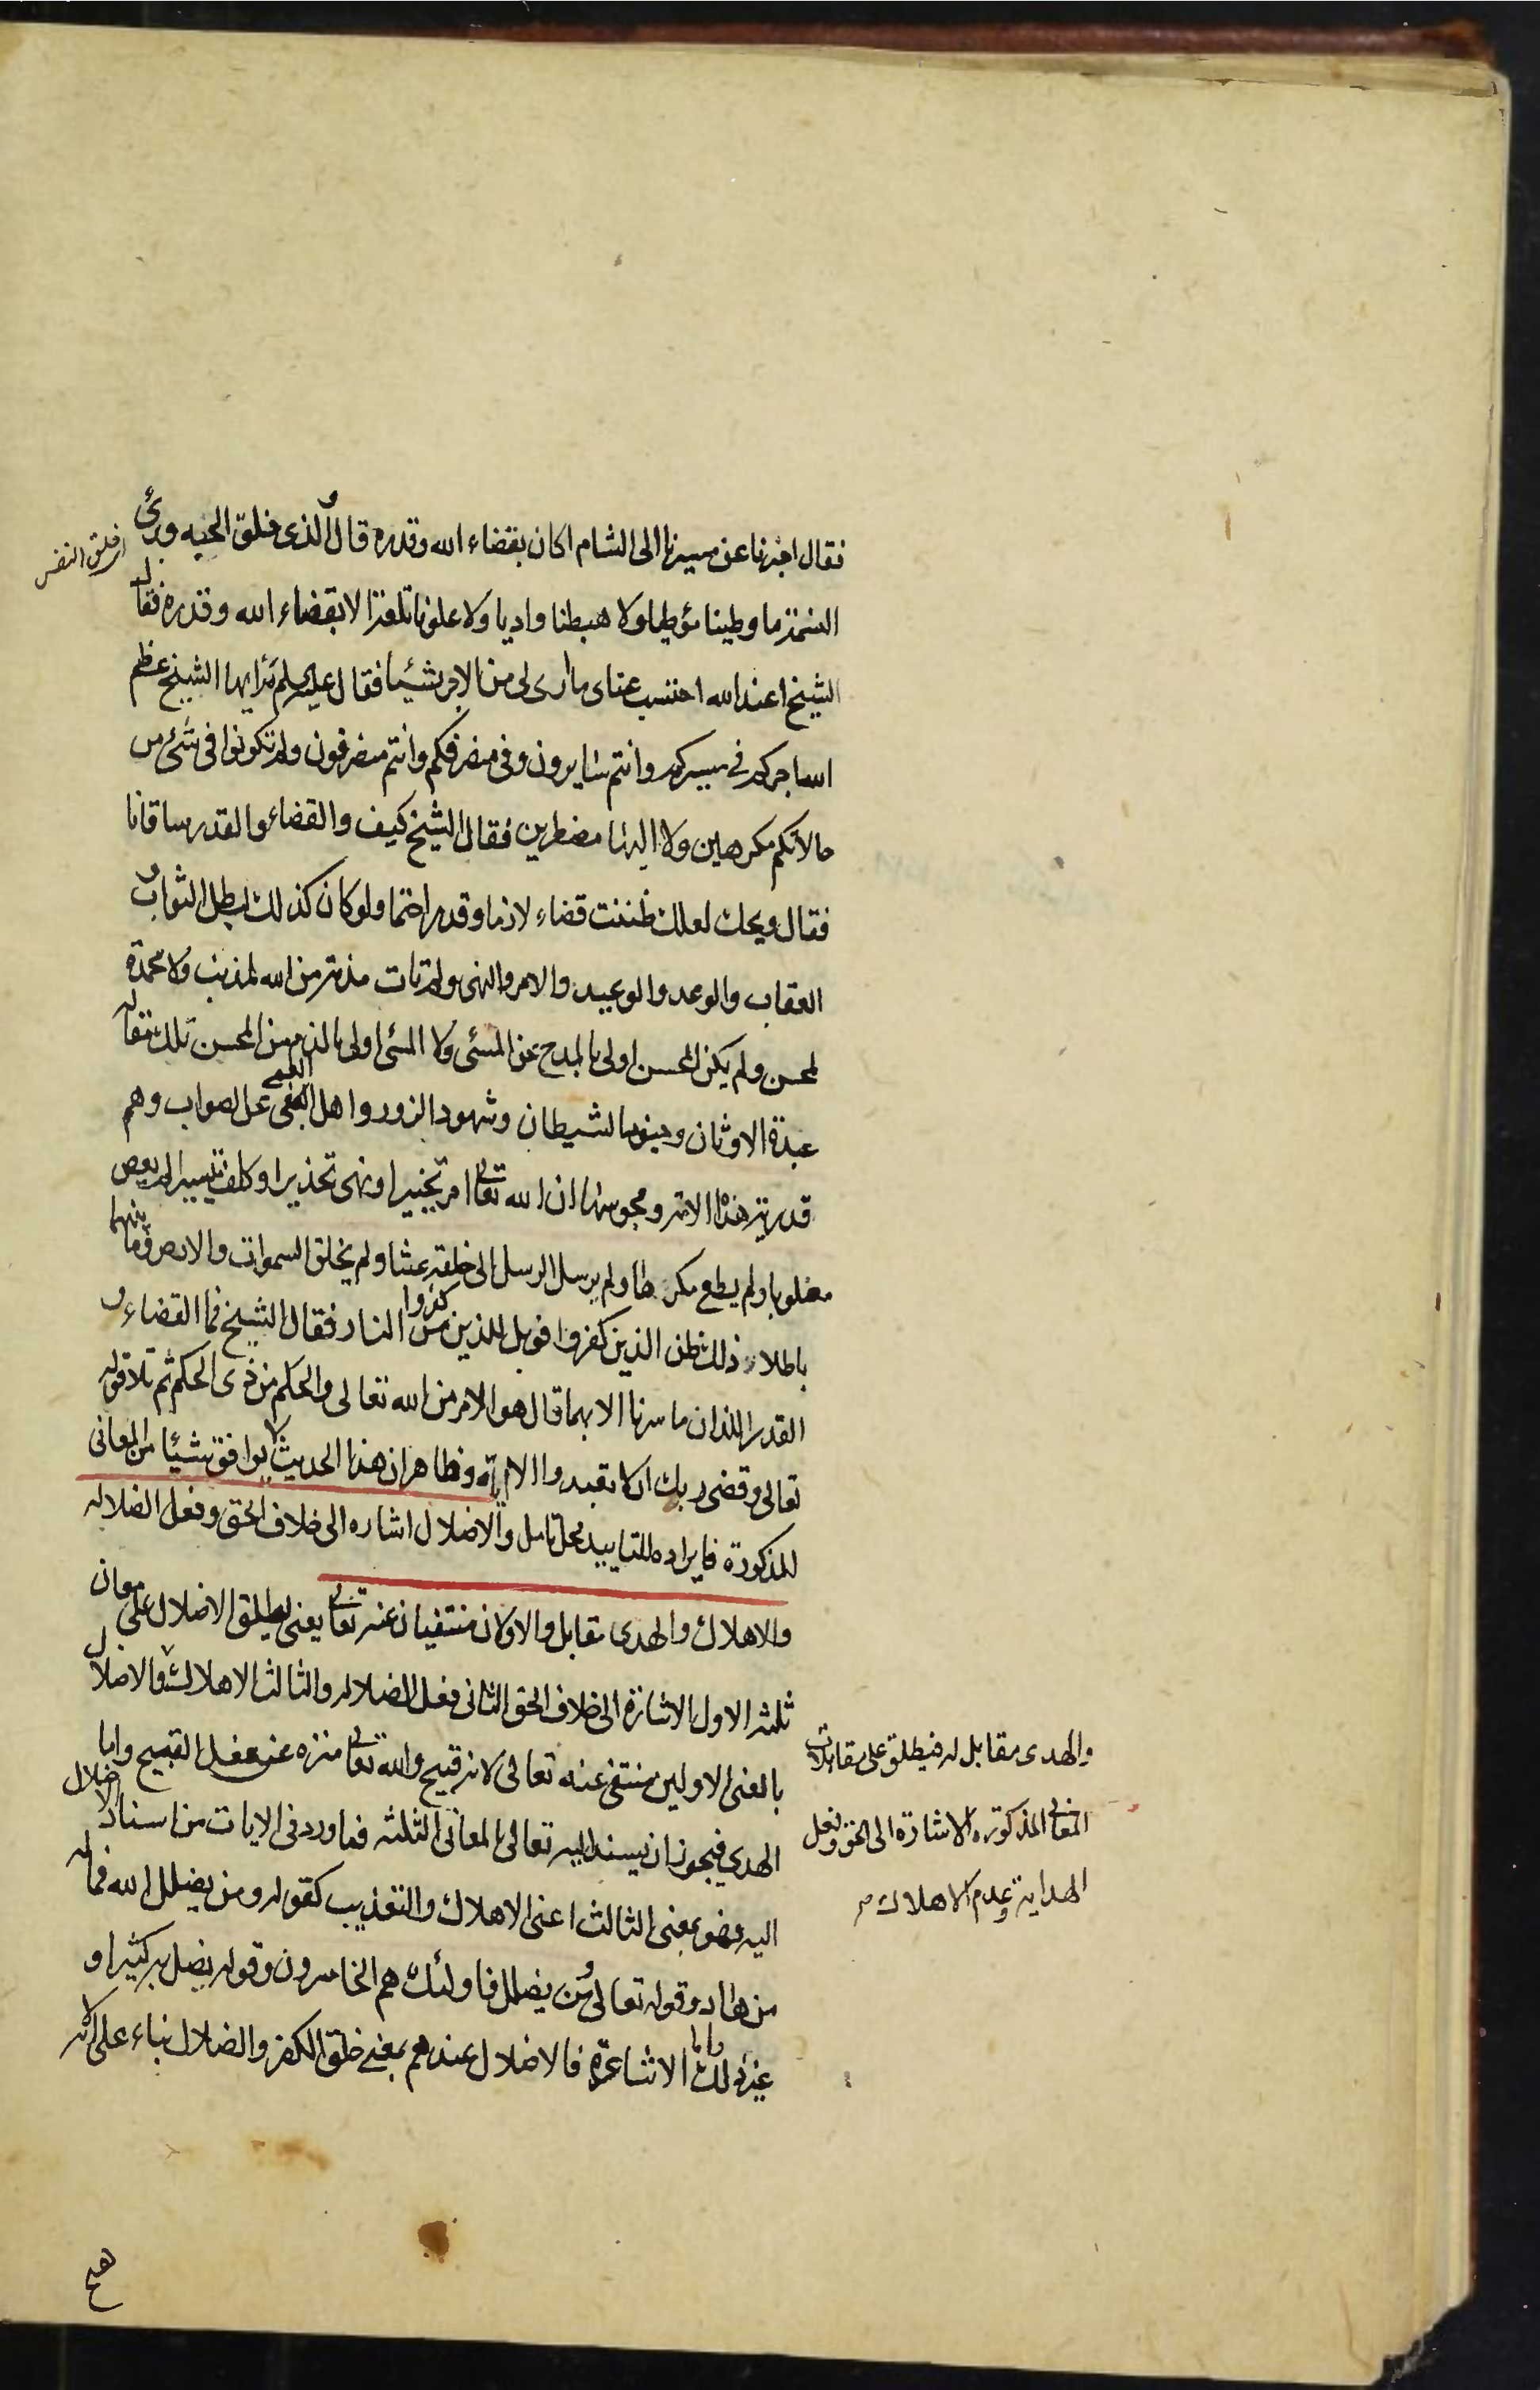 فقال اخبرنا عن مسيرنا الى الشام اكان بقضاء الله وقدره قال والذى فلق الحبه وبرئ
النسمة ما وطينا موطيا ولا هبطنا واديا ولا علونا تلعة الا بقضاء الله وقدره فقال
الشيخ اعند الله احتسب عناى ما ارى لى من الاجر شيئا فقال عليه السلم مه ايها الشيخ عظم
الله اجركم فى مسيركم وانتم سايرون وفى منصرفكم وانتم منصرفون ولم تكونوا فى شئ من
حالاتكم مكرهين ولا اليها مضطرين فقال الشيخ كيف والقضاء والقدر ساقانا
فقال ويحك لعلك ظننت قضاء لازما وقدرا حتما ولو كان كذلك لبطل الثواب و
العقاب والوعد والوعيد والامر والنهى ولم تات مذمة من الله لمذنب ولا محمدة
لمحسن ولم يكن المحسن اولى بالمدح عن المسئ ولا المسئ اولى بالذم من المحسن تلك مقاله
عبدة الاوثان وجنود الشيطان وشهود الزور واهل العمى عن الصواب وهم
قدرية هذه الامة ومجوسها ان الله تعالى امر تخييرا ونهى تحذيرا وكلف تيسيرا لم يعص
مغلوبا ولم يطع مكرها ولم يرسل الرسل الى خلقه عبثا ولم يخلق السموات والارض وما بينهما
باطلا ذلك ظن الذين كفروا فويل للذين كفروا من النار فقال الشيخ فما القضاء و
القدر اللذان ما سرنا الا بهما قال هو الامر من الله تعالى والحكم من ذى الحكم ثم تلا قوله
تعالى وقضى ربك ان لا تعبدوا الا اياه وظاهر ان هذا الحديث لا يوافق شيئا من المعانى
المذكورة فايراده للتاييد محل تامل والاضلال اشاره الى خلاف الحق وفعل الضلاله
والاهلاك والهدى مقابل والاولان منتفيان عنه تعالى يعنى يطلق الاضلال على معان
ثلثه الاول الاشارة الى خلاف الحق الثانى فعل الضلاله والثالث الاهلاك والاضلال
بالمعنى الاولين منتفى عنه تعالى لانه قبيح والله تعالى منزه عن فعل القبيح واما
الهدى فيجوز ان يسند اليه تعالى بالمعانى الثلثه فما ورد فى الايات من اسناد الاضلال
اليه فهو بمعنى الثالث اعنى الاهلاك والتعذيب كقوله ومن يضلل الله فما له
من هاد وقوله تعالى ومن يضلل فاولئك هم الخاسرون وقوله يضل به كثيرا و
غير ذلك واما الاشاعرة فالاضلال عندهم بمعنى خلق الكفر والضلال بناء على انه لا
والهدى مقابل له فيطلق على مقابلات
المعانى المذكوره الاشارة الى الحق وفعل
الهداية وعدم الاهلاك